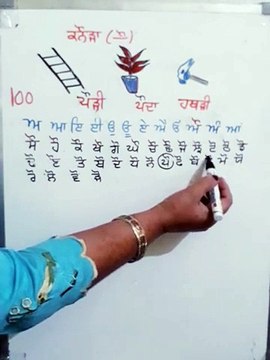 ਕਨੌੜਾ (ੌ)
100 ਪੌੜੀ ਪੌਦਾ ਹਥੌੜੀ
ਅ ਆ ਇ ਈ ਉ ਊ ਏ ਐ ਓ ਔ ਅੰ ਆਂ
ਸੌ ਹੌ ਕੌ ਖੌ ਗੌ ਘੌ ਚੌ ਛੌ ਜੌ ਝੌ ਟੌ ਠੌ ਡੌ
ਢੌ ਣੌ ਤੌ ਥੌ ਦੌ ਧੌ ਨੌ ਪੌ ਫੌ ਬੌ ਮੌ ਯੌ
ਰੌ ਲੌ ਵੌ ੜੌ